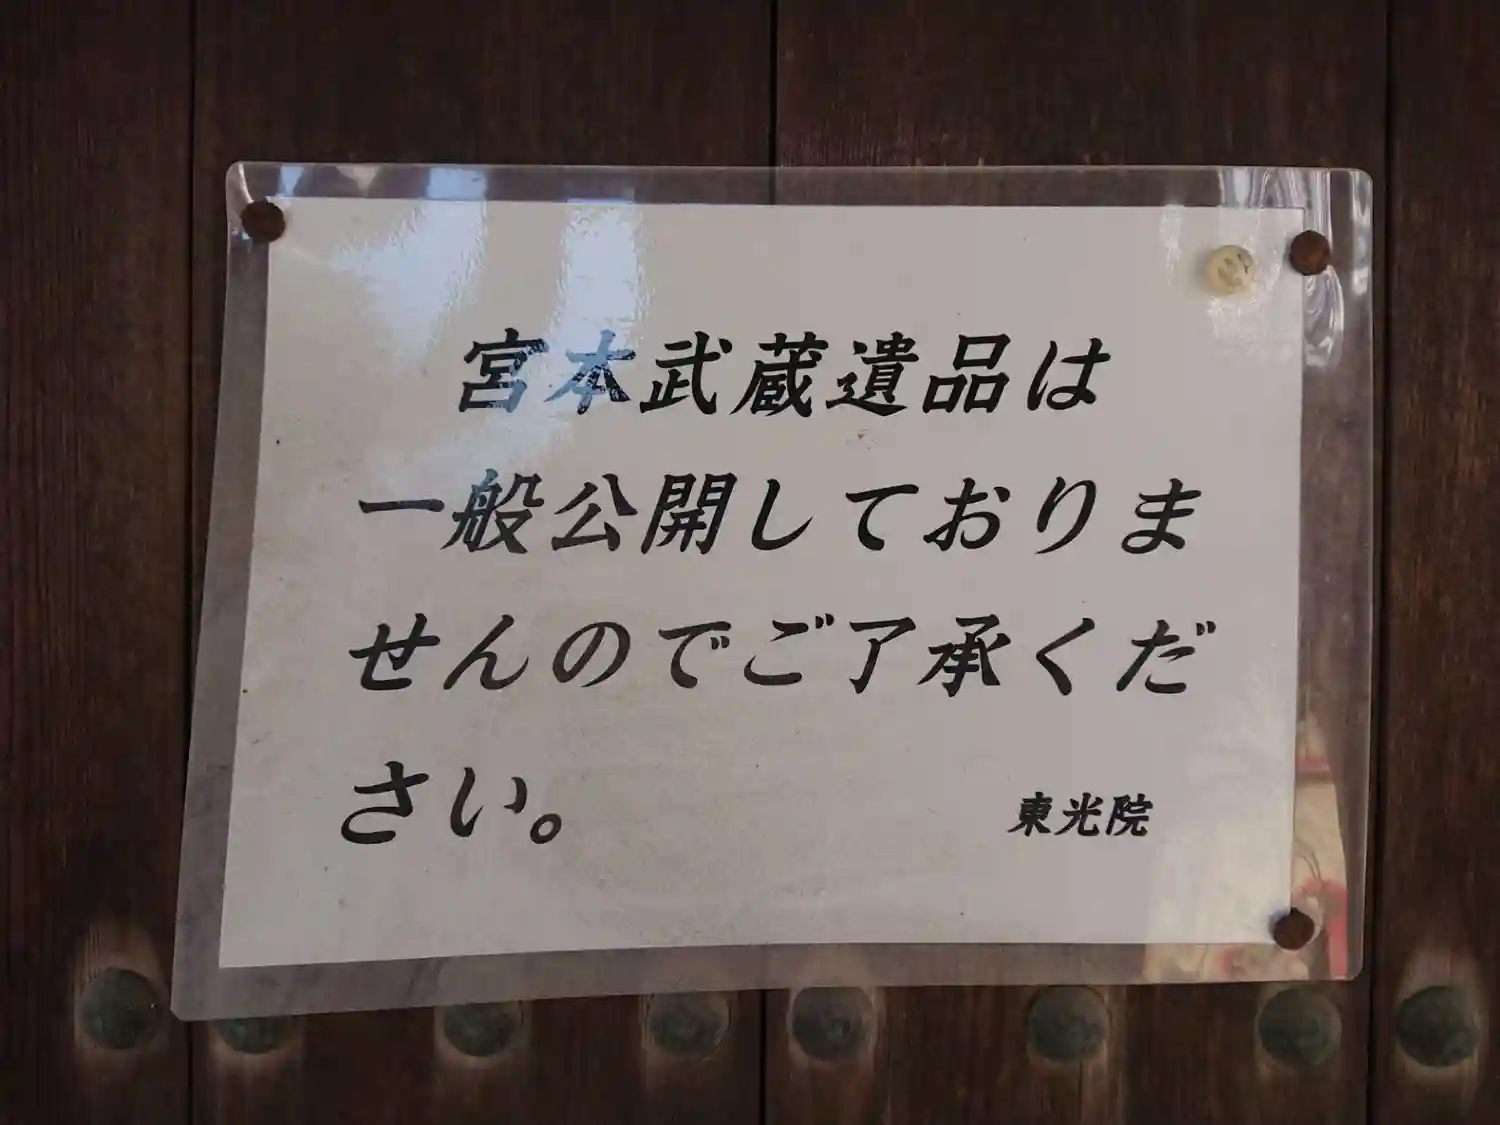 宮本武蔵遺品は
一般公開しておりま
せんのでご了承くだ
さい。
東光院